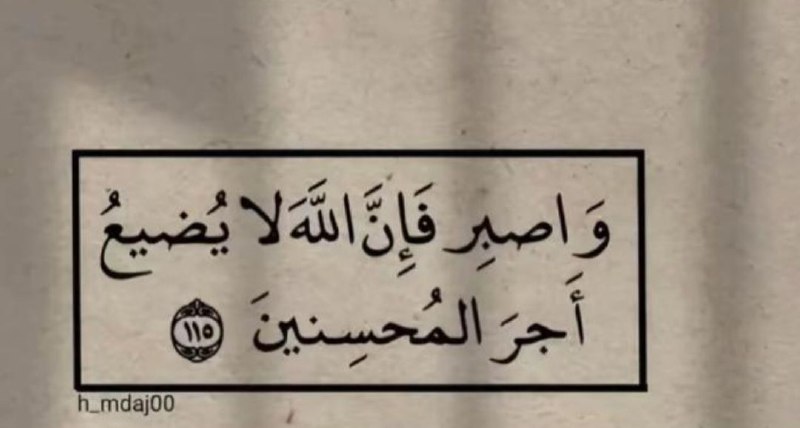 وَاصبِر فَإِنَّ اللَّهَ لا يُضيعُ
أَجرَ المُحسِنينَ ١١٥
h_mdaj00